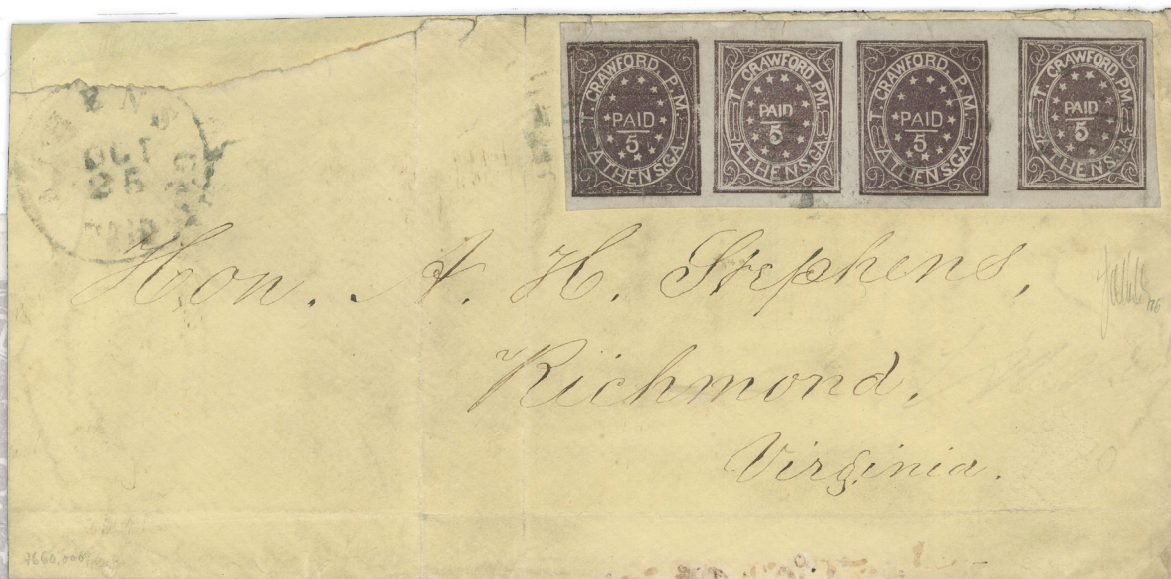 T. CRAWFORD, P.M.
PAID
5
ATHENS, GA.
T. CRAWFORD, P.M.
PAID
5
ATHENS, GA.
T. CRAWFORD, P.M.
PAID
5
ATHENS, GA.
T. CRAWFORD, P.M.
PAID
5
ATHENS, GA.
OCT
25
PAID
Hon. A. H. Stephens,
Richmond,
Virginia.